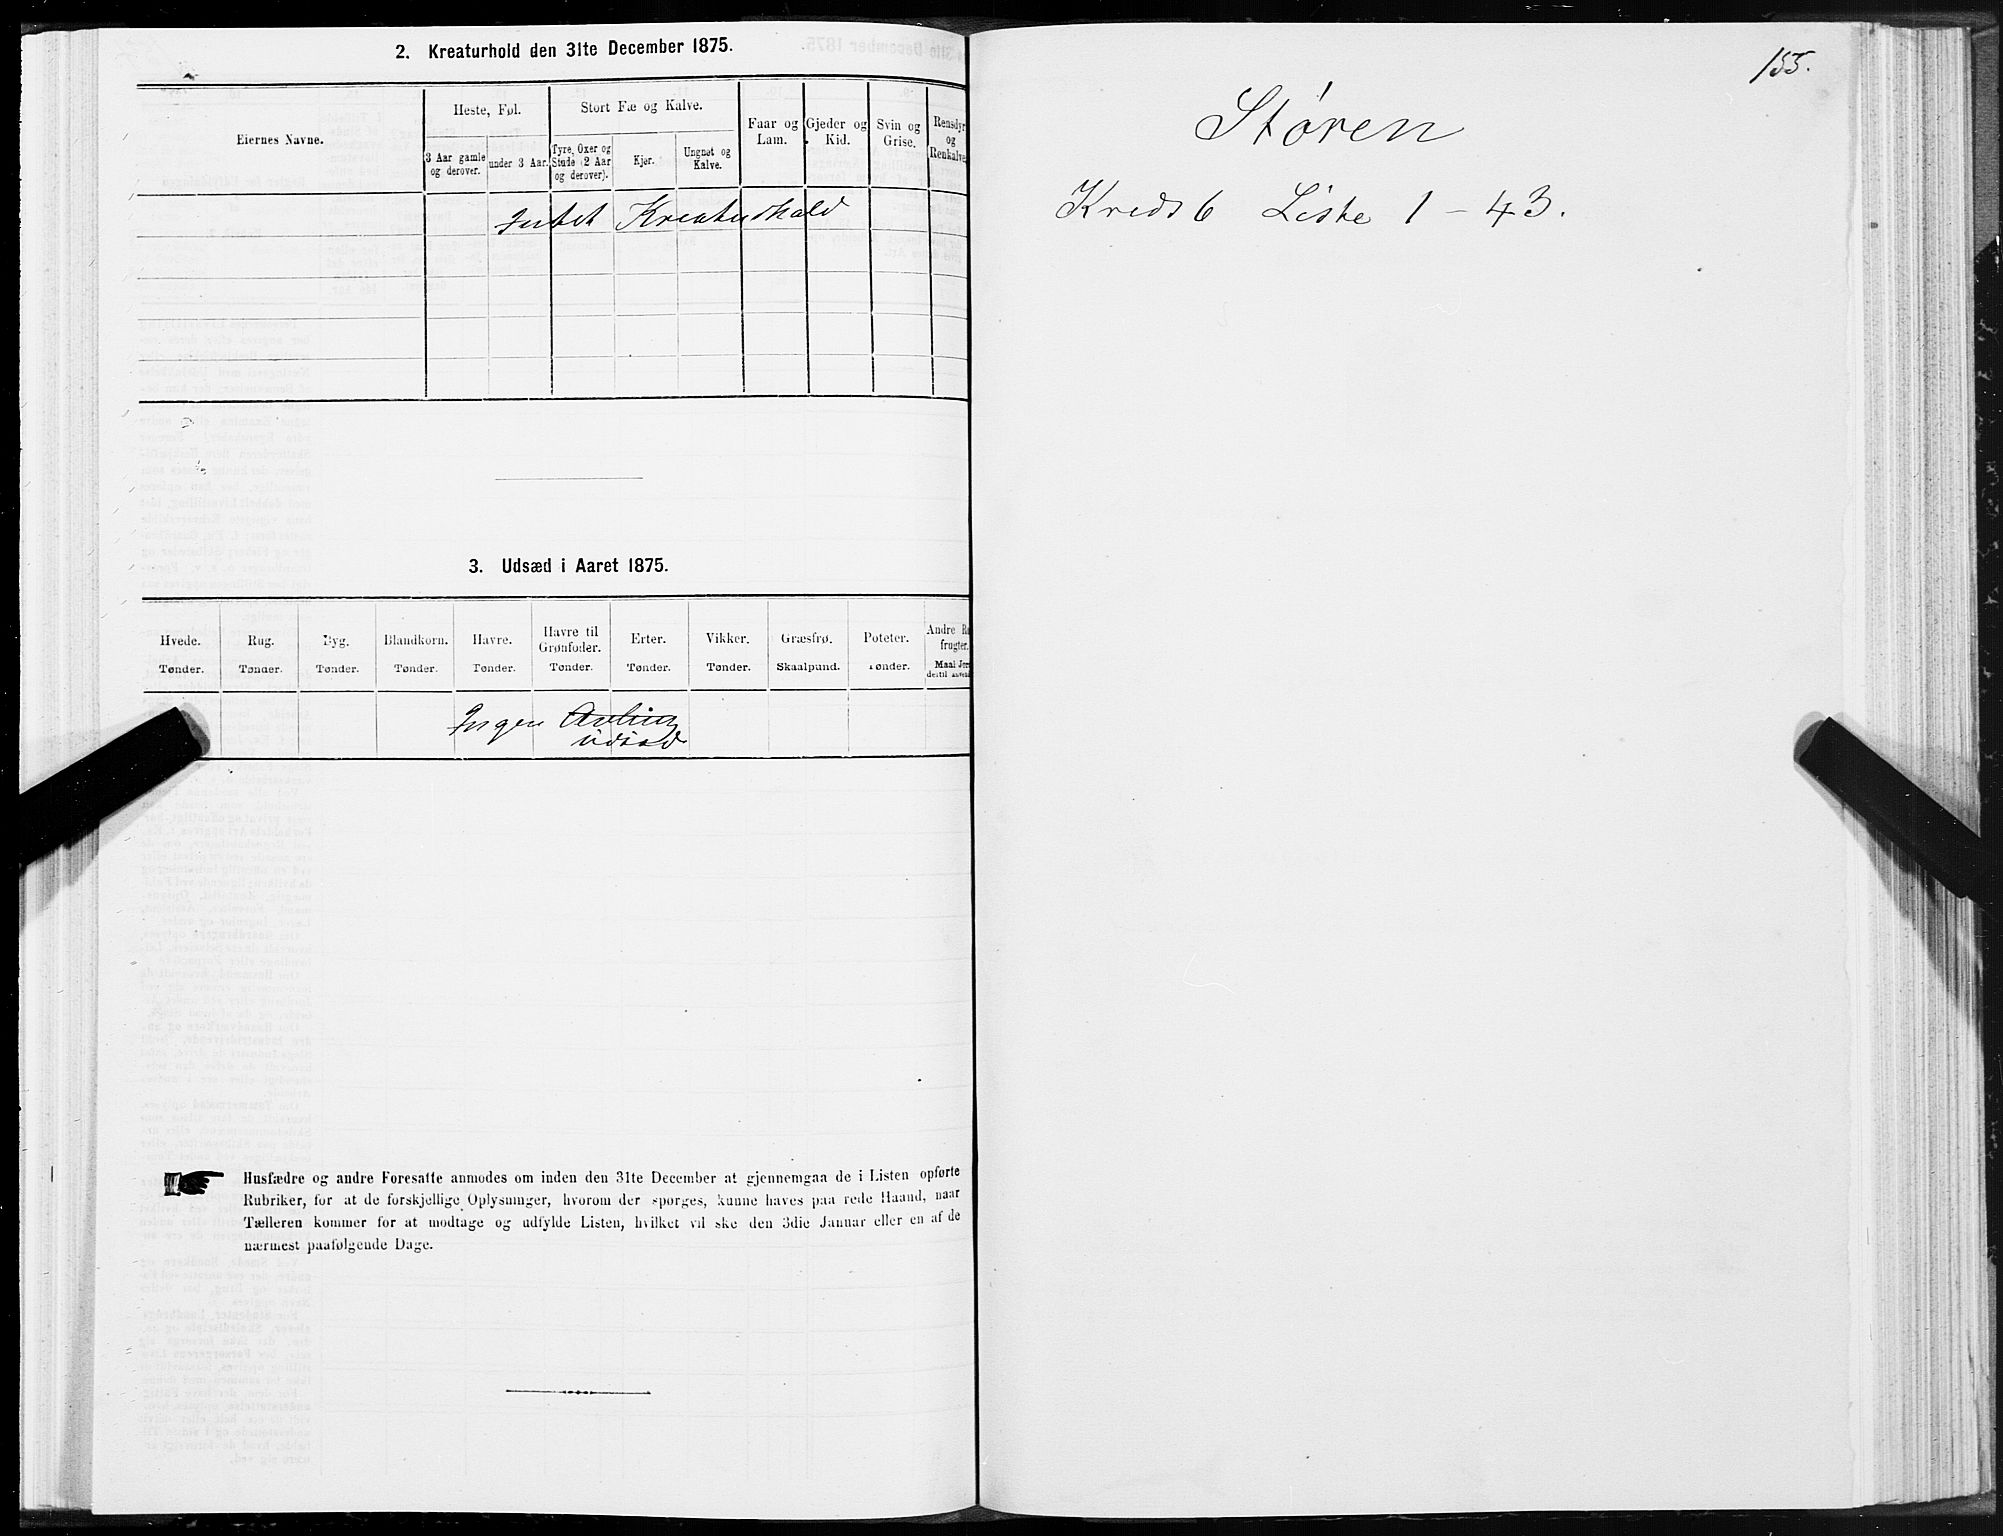 2. Kreaturhold den 31te December 1875.
Eiernes Navne.
Heste, Føl.
Stort Fæ og Kalve.
Faar og Lam.
Gjeder og Kid.
Svin og Grise.
Rensdyr og Renkalve.
3 Aar gamle og derover.
under 3 Aar.
Tyre, Oxer og Stude (2 Aar og derover).
Kjør.
Ungnøt og Kalve.
Intet Kreaturhold
3. Udsæd i Aaret 1875.
Hvede. Rug. Byg. Blandkorn. Havre. Havre til Grønfoder. Erter. Vikker. Græsfrø. Poteter. Andre
frugter.
Tønder. Tønder. Tønder. Tønder. Tønder. Tønder. Tønder. Tønder. Skaalpund. Tønder. Maal
dertil
Ingen Avling
Udsæd
Husfædre og andre Foresatte anmodes om inden den 31te December at gjennemgaa de i Listen opførte
Rubriker, for at de forskjellige Oplysninger, hvorom der spørges, kunne haves paa rede Haand, naar
Tælleren kommer for at modtage og udfylde Listen, hvilket vil ske den 3die Januar eller en af de
nærmest paafølgende Dage.
155.
Støren
Kreds 6 Liste 1 – 43.